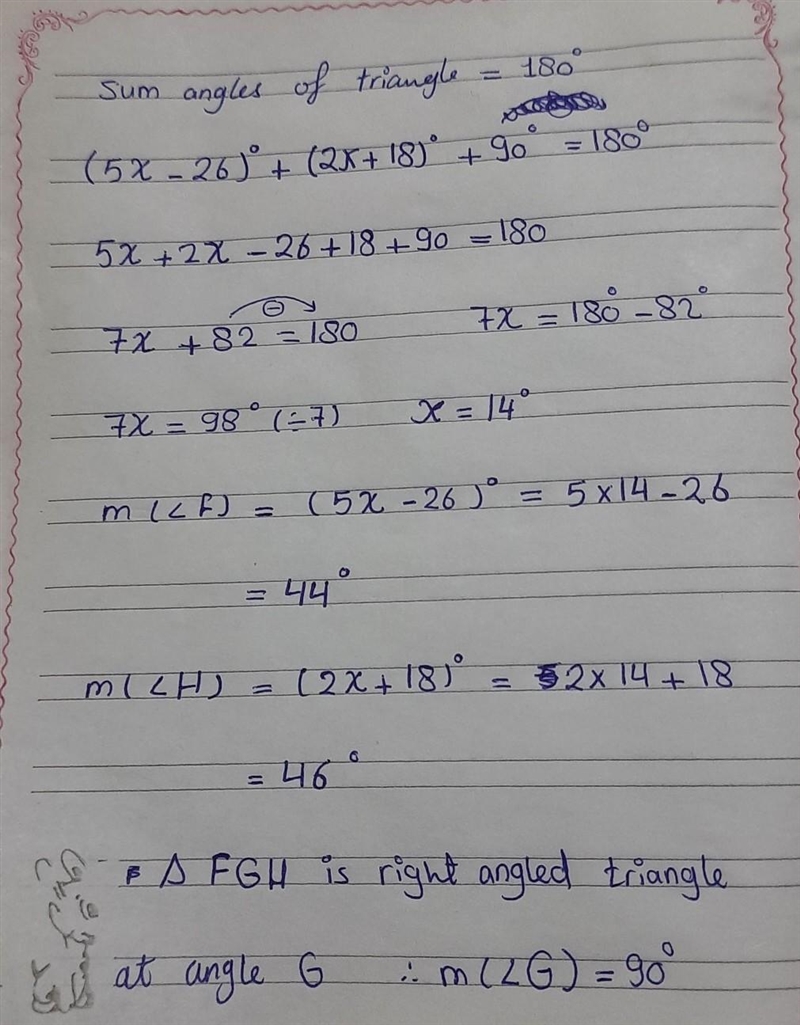 Sum angles of triangle = 180°
(5x - 26)° + (2x + 18)° + 90° = 180°
5x + 2x - 26 + 18 + 90 = 180
7x + 82 = 180 7x = 180° - 82°
7x = 98° (÷7) x = 14°
m (∠F) = (5x - 26)° = 5 × 14 - 26
= 44°
m (∠H) = (2x + 18)° = 2 × 14 + 18
= 46°
Δ FGH is right angled triangle
at angle G ∴ m (∠G) = 90°